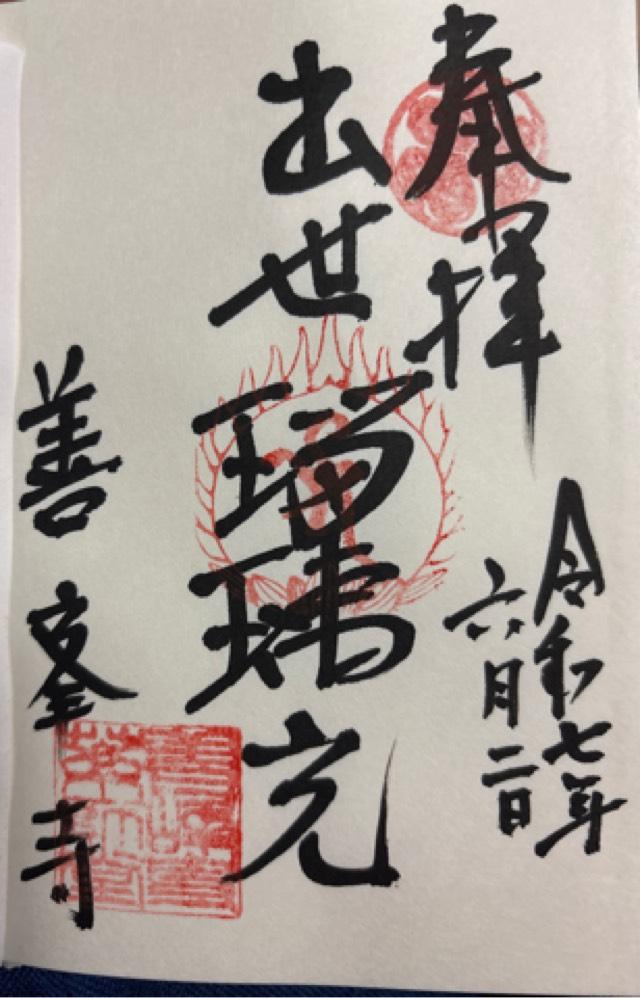 奉拝
令和七年
六月二日
出世
瑠璃光
善峯寺